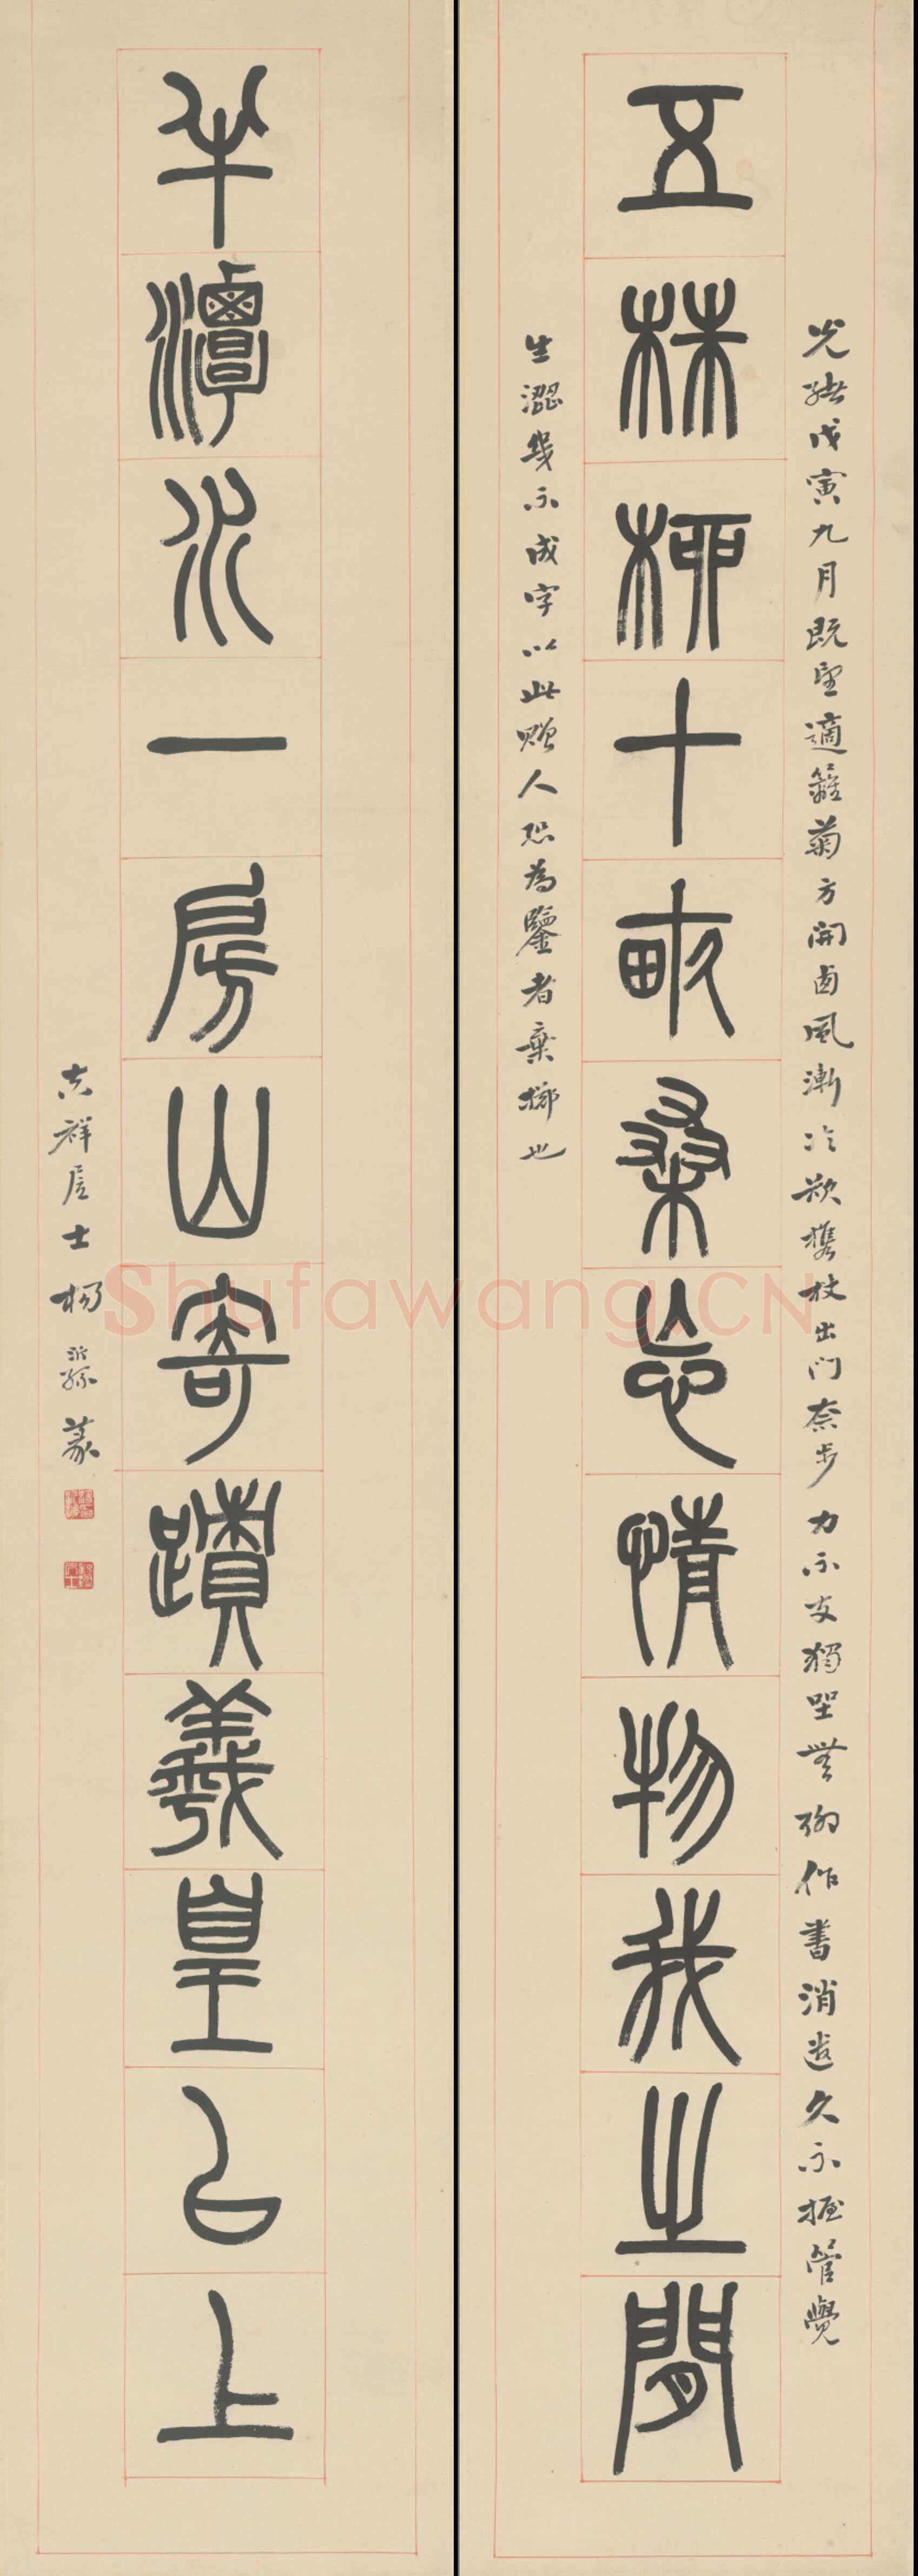 光緒戊寅九月既望適籬菊方開西風漸冷欲攜杖出門柰步力不支獨坐無聊作書消遣久不握管覺
五株柳十畝桑忘情物我之間
生澀幾不成字以此贈人恐為鑒者棄擲也
半潭水一房山寄蹟羲皇㠯上
吉祥居士楊沂孫篆
Shufawang.CN